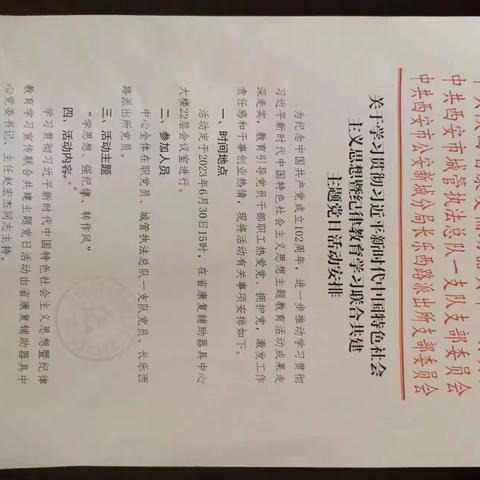 中共西安市城管执法总队一支队支部委员会
中共西安市公安新城分局长乐西路派出所支部委员会
关于学习贯彻习近平新时代中国特色社会
主义思想暨纪律教育学习联合共建
主题党日活动安排
为纪念中国共产党成立102周年，进一步推动学习贯彻
习近平新时代中国特色社会主义思想主题教育活动成果走
深走实，教育引导党员干部职工热爱党、拥护党，激发工作
责任感和干事创业热情，现将活动有关事项安排如下。
一、时间地点
活动定于2023年6月30日15时，在省康复辅助器具中心
大楼22层会议室进行。
二、参加人员
中心全体在职党员、城管执法总队一支队党员、长乐西
路派出所党员。
三、活动主题
“学思想、强纪律、转作风”
四、活动内容
学习贯彻习近平新时代中国特色社会主义思想暨纪律
教育学习宣传联合共建主题党日活动由省康复辅助器具中
心党委书记、主任赵宏杰同志主持。